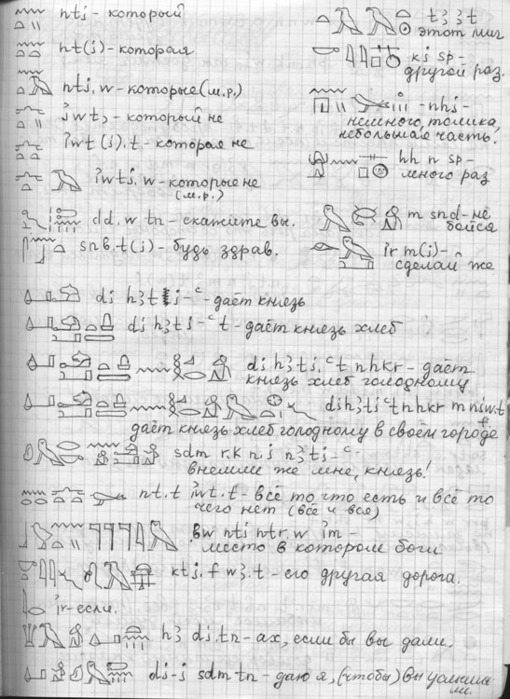 ntj - который
nt(j) - которая
ntj.w - которые (м.р.)
jwtj - который не
jwt(j).t - которая не
jwtj.w - которые не
(м.р.)
dd.w tn - скажите вы.
snb.t(j) - будь здрав.
t3 3t
этот миг
kj sp -
другой раз.
- nhj -
немного, толика,
небольшая часть.
hh n sp -
много раз
m snd - не
бойся
jr m(j) -
сделай же
dj h3tj-c - даёт князь
dj h3tj-c t - даёт князь хлеб
dj h3tj.c t n hkr - даёт
князь хлеб голодному
dj h3tjc t n hkr m niw.t f
даёт князь хлеб голодному в своём городе
sdm r.k n.j h3tj-c -
внемли же мне, князь!
nt.t jwt.t - всё то, что есть и всё то
чего нет (всё и вся)
bw ntj ntr.w jm -
место в котором боги
ktj.f w3.t - его другая дорога.
jr - если.
h3 dj.tn - ах, если бы вы дали.
dj-j sdm tn - даю я, (чтобы) вы услыша
ли.